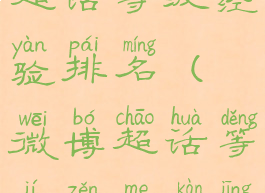 超话等级经
yàn pái míng
验排名（
wēi bó chāo huà děng
微博超话等
jí zěn me kàn jīng